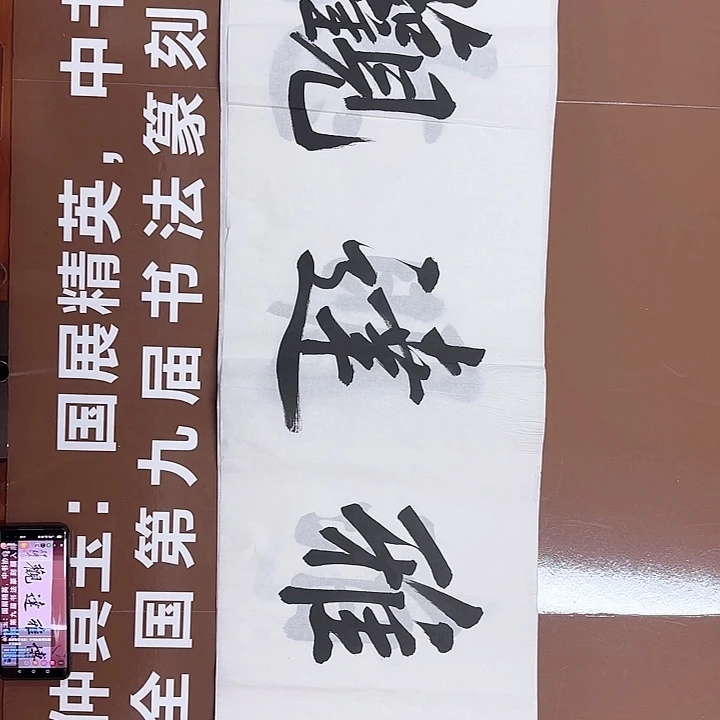 仲玉：国展精英，中书
全国第九届书法篆刻
雅達觀